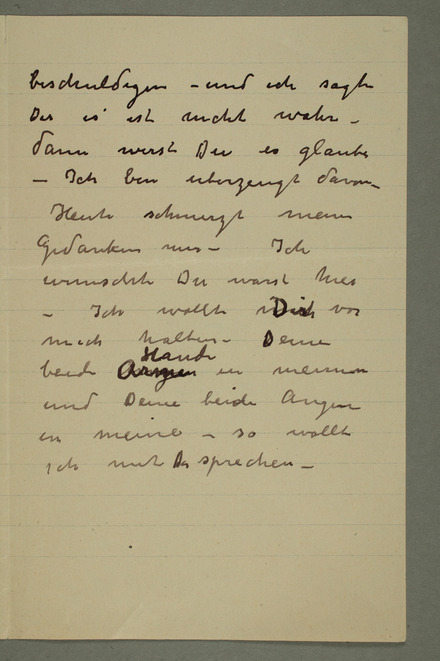 beschuldigen – und ich sagte
Dir es ist nicht wahr –
dann wirst Du es glauben
– Ich bin uberzeugt davon –
Heute schmerzt mein
Gedanken nur – Ich
wunschte Du warst hier
– Ich wollte Dich vor
mich halten – Deine
beide Hande in meinen
und Deine beide Augen
in meine – so wollt
ich mit Dir sprechen –